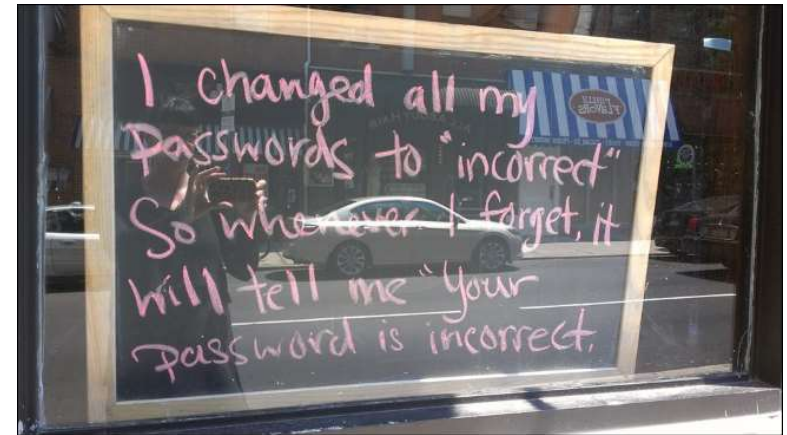 I changed all my
Passwords to "incorrect"
So whenever I forget, it
will tell me "Your
password is incorrect.